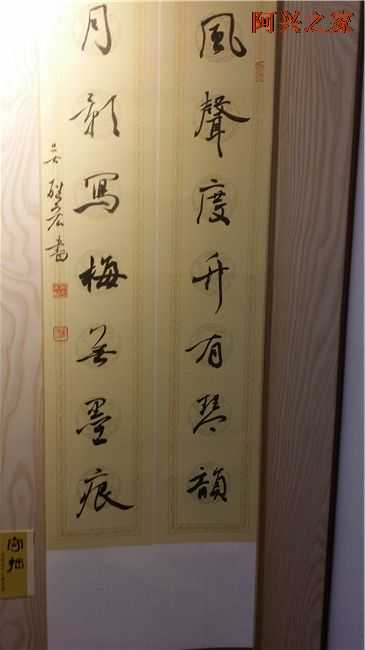 阿兴之家
風聲度竹有琴韻
月影寫梅無墨痕
守拙